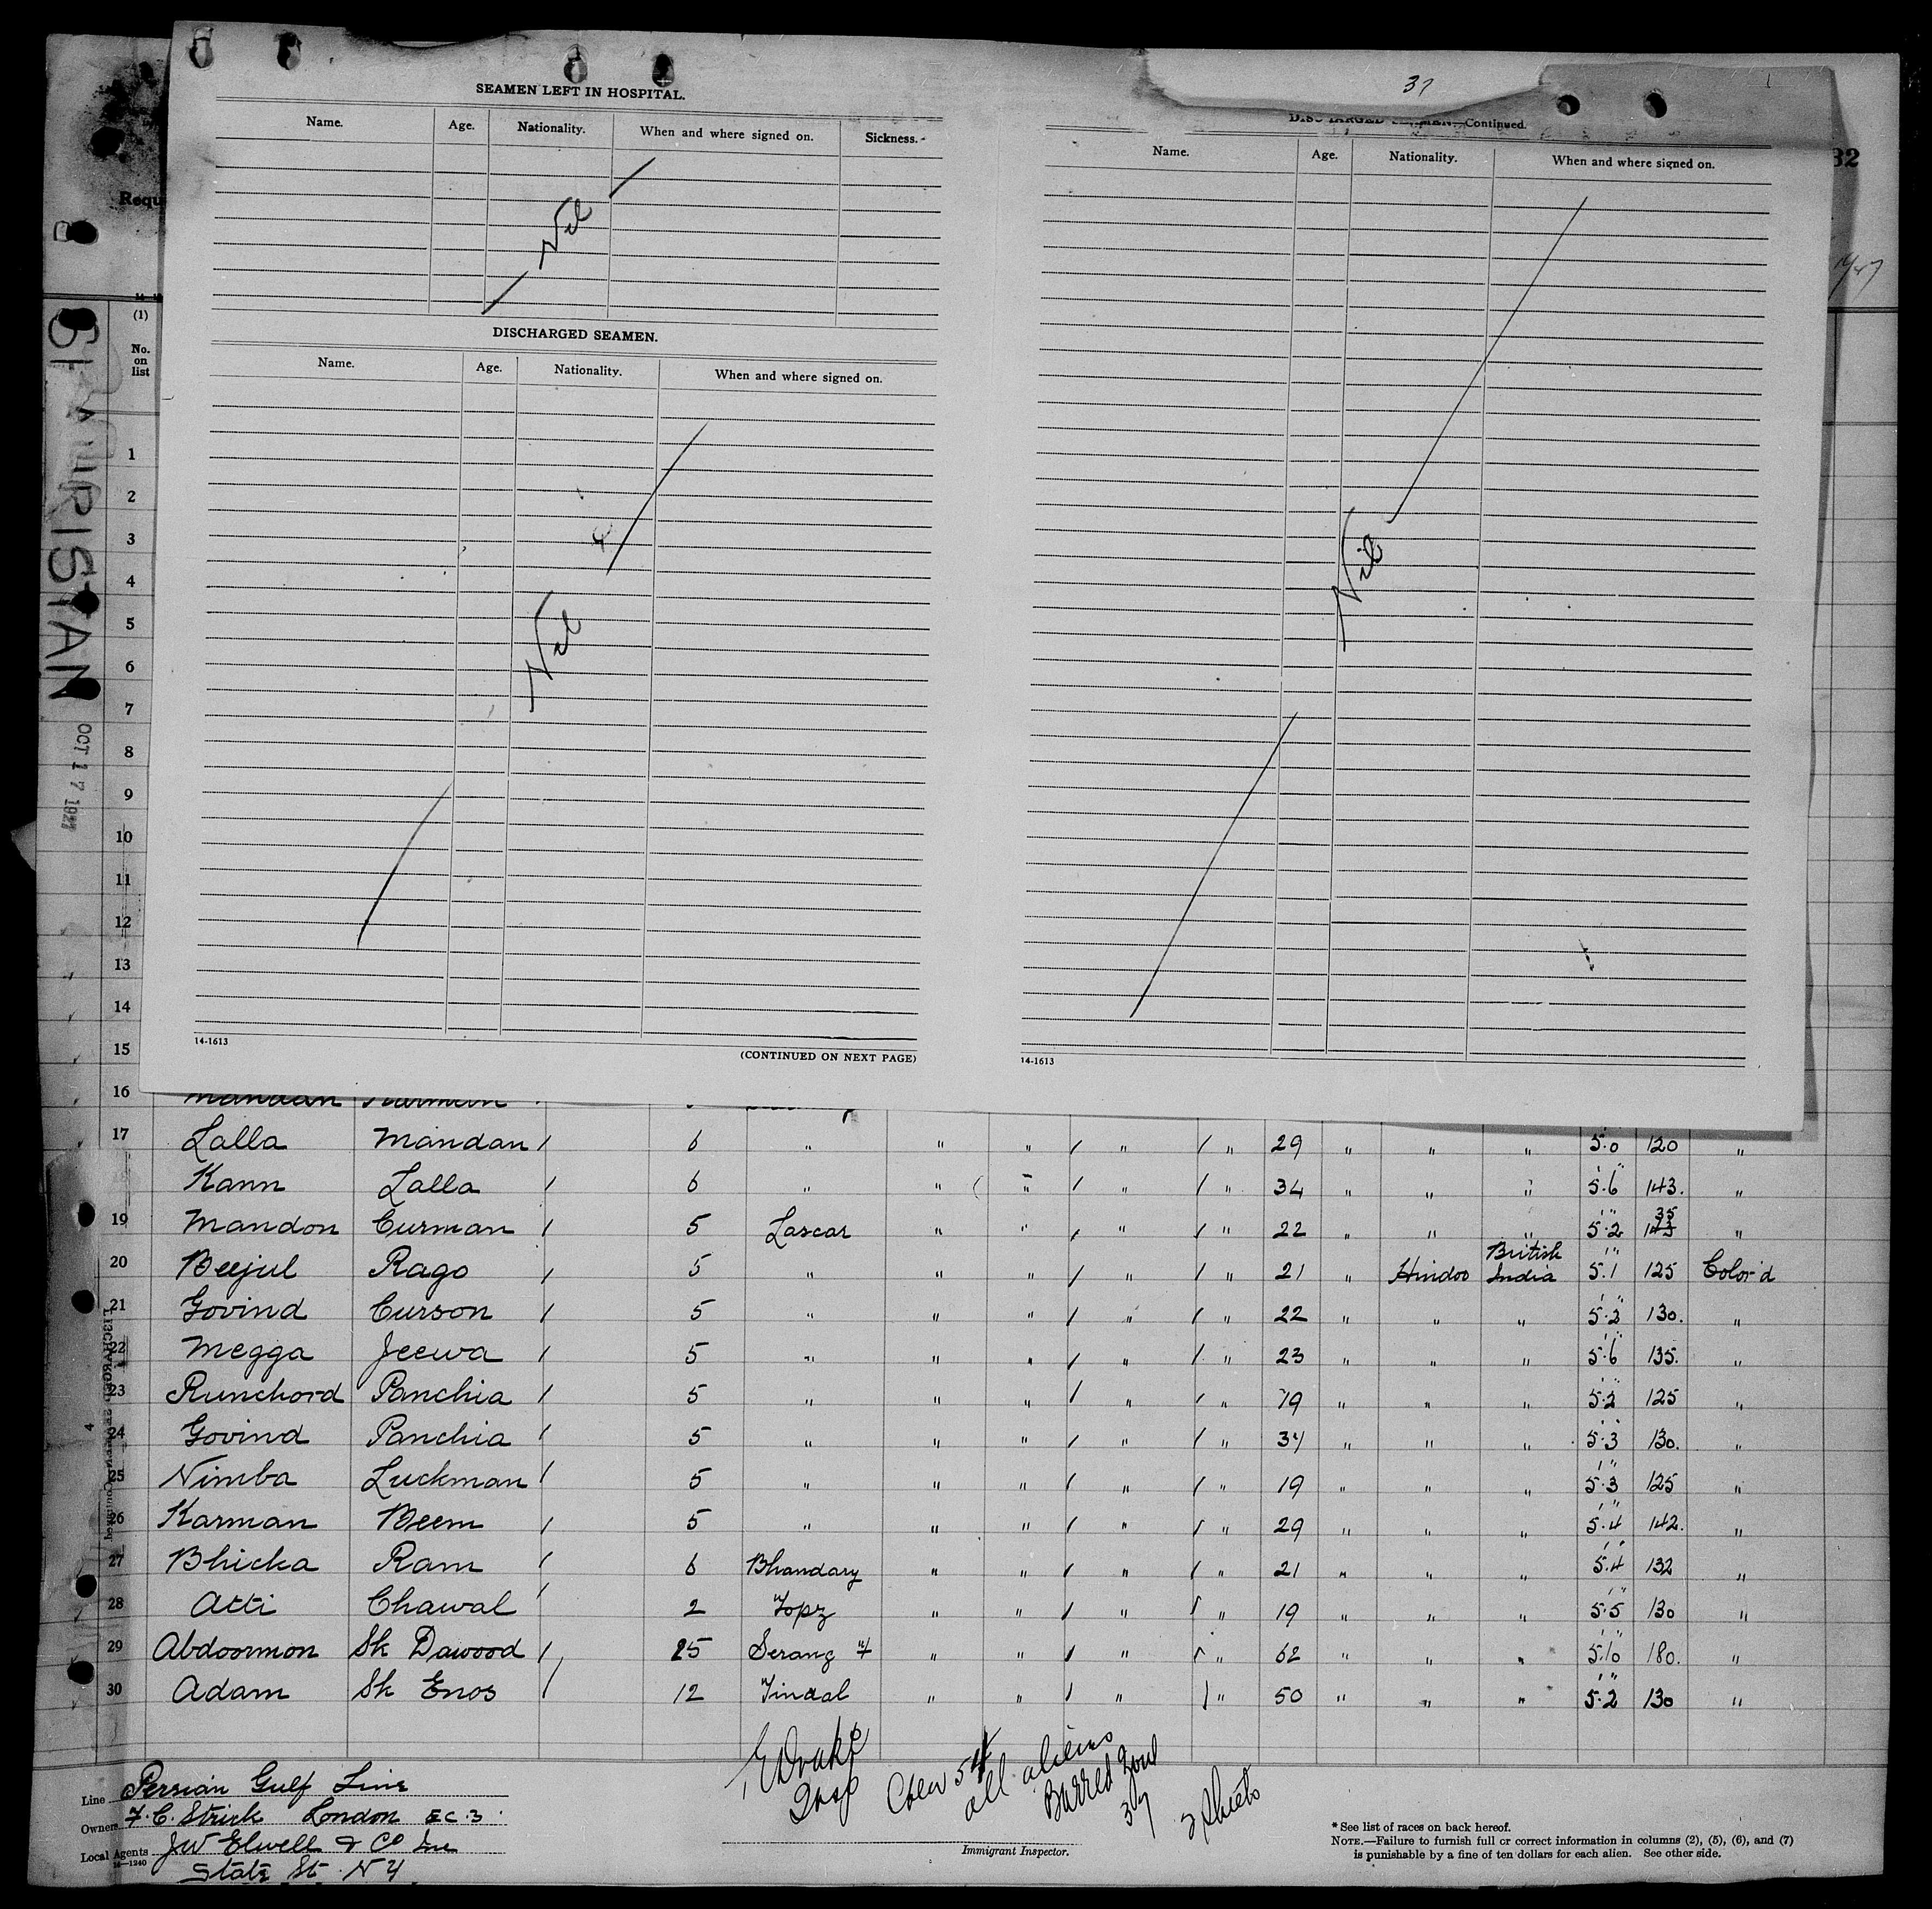 37
SEAMEN LEFT IN HOSPITAL.
Name. Age. Nationality. When and where signed on. Sickness.
Nil
DISCHARGED SEAMEN.
Name. Age. Nationality. When and where signed on.
Nil
14-1613
(CONTINUED ON NEXT PAGE)
DISCHARGED SEAMEN—Continued.
Name. Age. Nationality. When and where signed on.
Nil
14-1613
32
Requ
(1)
No. on list
OCT 17 1927
1
2
3
4
5
6
7
8
9
10
11
12
13
14
15
16 Mandan
17 Lalla Mandan / 6 " " " / " / " 29 " " " 5.0 120 "
Kann Lalla / 6 " " " / " / " 34 " " " 5.6 143. "
19 Mandon Curman / 5 Lascar " " / " / " 22 " " " 5.2 35 143 "
20 Beejul Rago / 5 " " " / " / " 21 " Hindoo British India 5.1 125 Color'd
21 Govind Curson / 5 " " " / " / " 22 " " " 5.2 130. "
22 Megga Jeewa / 5 " " " / " / " 23 " " " 5.6 135. "
23 Runchord Panchia / 5 " " " / " / " 19 " " " 5.2 125 "
24 Govind Panchia / 5 " " " / " / " 34 " " " 5.3 130. "
25 Nimba Luckman / 5 " " " / " / " 19 " " " 5.3 125 "
26 Karman Beem / 5 " " " / " / " 29 " " " 5.4 142. "
27 Bhicka Ram / 6 Bhandary " " / " / " 21 " " " 5.4 132 "
28 Atti Chawal / 2 Topz " " / " / " 19 " " " 5.5 130 "
29 Abdoormon Sk Dawood / 25 Serang " " / " / " 62 " " " 5.10 180. "
30 Adam Sk Enos / 12 Tindal " " / " / " 50 " " " 5.2 130 "
E Drake
Crew 54
all aliens
Barred Zone
37
3 Sheets
Immigrant Inspector.
Line Persian Gulf Line
Owners F. C. Strick London EC.3
Local Agents JW Elwell & Co Inc
14-1240
State St. N Y.
* See list of races on back hereof.
NOTE.—Failure to furnish full or correct information in columns (2), (5), (6), and (7)
is punishable by a fine of ten dollars for each alien. See other side.